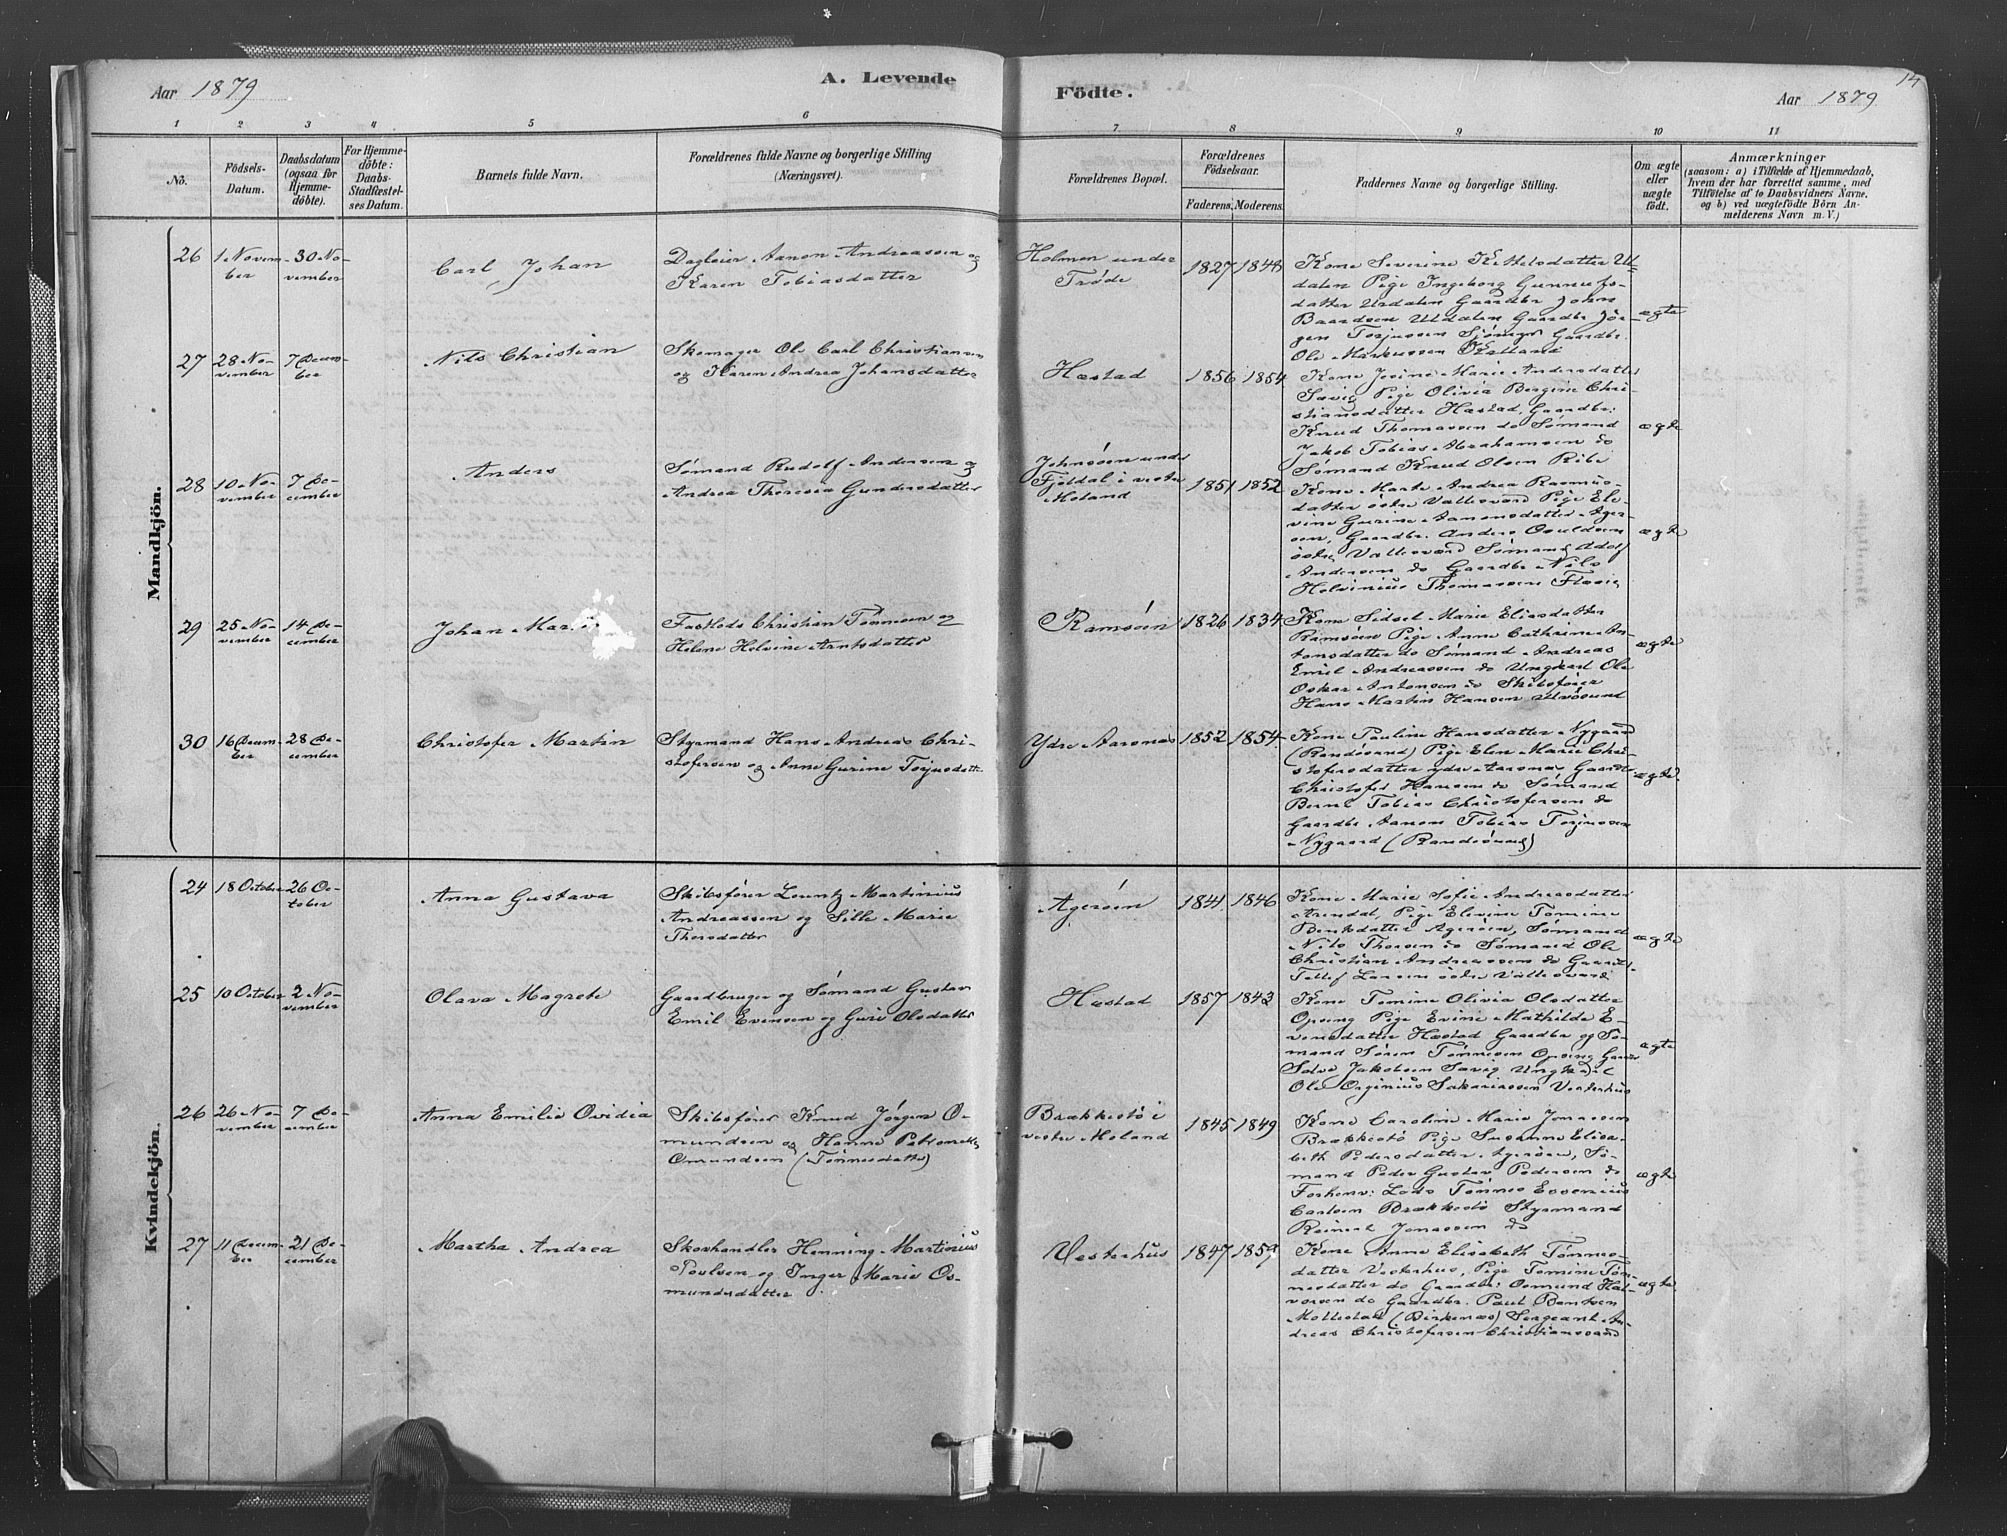 Aar 1879
A. Levende
Födte.
Aar 1879
14
1 2 3 4 5 6 7 8 9 10 11
No.
Födsels-
Datum.
Daabsdatum
(ogsaa for
Hjemme-
döbte).
For Hjemme-
döbte:
Daabs-
Stadfæstel-
ses Datum.
Barnets fulde Navn.
Forældrenes fulde Navne og borgerlige Stilling
(Næringsvei).
Forældrenes Bopæl.
Forældrenes
Födselsaar.
Faderens. Moderens.
Faddernes Navne og borgerlige Stilling.
Om ægte
eller
uægte
födt.
Anmærkninger
(saasom: a) i Tilfælde af Hjemmedaab,
hvem der har forrettet samme, med
Tilföielse af to Daabsvidners Navne,
og b) ved uægtefödte Börn An-
melderens Navn m. V.)
Mandkjön.
26
1 Novem-
ber
30 No-
vember
Carl Johan
Dagleier Aanon Andreassen og
Karen Tobiasdatter
Holmen under
Trøde
1827 1843
Kone Severine Kittelsdatter Ul-
dalen Pige Ingeborg Gunnufs-
datter Urdalen Gaardbr John
Baardsen Uldalen Gaardbr Jör-
gen Torjussen Gaardbr.
Ole Markussen
ægte
27
28 No-
vember
7 Decem-
ber
Nils Christian
Skomager Ole Carl Christiansen
og Karen Andrea Johansdatter
Hæstad
1856 1854
Kone Josine Marie Andersdatter
Sævig Pige Olivia Bergine Chri-
stiansdatter Hæstad, Gaardbr:
Knud Thomassen do Sømand
Jakob Tobias Abrahamsen do
Sømand Knud Olsen Ribe
ægte
28
10 No-
vember
7 De-
cember
Anders
Sømand Rudolf Andersen og
Andrea Theresia Gundersdatter
Johnsöen under
Fjeldal i vestre
Moland
1851 1852
Kone Marte Andrea Rasmus-
datter östre Vallesverd Pige Ele-
vine Gurine Aanonsdatter Ager-
öen, Gaardbr. Anders Osuldsen
östre Vallesværd Sømand Adolf
Andersen do Gaardbr Nils
Helvinius Thomassen
ægte
29
25 No-
vember
14 De-
cember
Johan
Fastlods Christian Tønnesen og
Helene Helvine Arntsdatter
Ramsöen
1826 1834
Kone Sidsel Marie Eliasdatter
Ramsöen Pige Anne Cathrine An-
tonsdatter do Sømand Andreas
Emil Andreassen do Ungkarl Ole
Oskar Antonsen do Skibsfører
Hans Martin Hansen Ulvösund
ægte
30
16 Decem-
ber
28 De-
cember
Christofer Martin
Styrmand Hans Andreas Chri-
stofersen og Anne Gurine Torjusdatter
Ydre Aaronæs
1852 1854
Kone Pauline Hansdatter Nygaard
(Randösund) Pige Elen Marie Chri-
stofersdatter ydre Aaronæs Gaardbr
Christofer Hansen do Sømand
Bernt Tobias Christofersen do
Gaardbr Aanon Tobias Torjussen
Nygaard (Randösund)
ægte
Kvindekjön.
24
18 October
26 Oc-
tober
Anna Gustava
Skibsfører Lorentz Martinius
Andreassen og Sille Marie
Thorsdatter
Ageröen
1841 1846
Kone Marie Sofie Andreasdatter
Arendal, Pige Elevine Tomine
Bentsdatter Ageröen, Sømand
Nils Thorsen do Sømand Ole
Christian Andreassen do Gaardbr
Tellef Larsen östre Vallesværd
ægte
25
10 October
2 No-
vember
Olava Magrete
Gaardbruger og Sømand Gustav
Emil Evensen og Guri Olsdatter
Hæstad
1857 1843
Kone Tomine Olivia Olsdatter
Opseng Pige Evine Mathilde E-
vensdatter Hæstad Gaardbr og Sø-
mand Søren Tønnesen Opseng Gaardbr
Salve Jakobsen Sævig Ungkarl
Ole Orginius Sakariassen Vesterhus
ægte
26
26 No-
vember
7 De-
cember
Anna Emilie Ovidia
Skibsfører Knud Jørgen O-
mundsen og Hanne Petronelle
Omundsen (Tønnesdatter)
Brækkestö i
vestre Moland
1845 1849
Kone Caroline Marie Jonassen
Brækkestö Pige Susanne Elisa-
beth Pedersdatter Ageröen, Sø-
mand Peder Gustav Pedersen do
Forhenv: Lods Tønnes Essenius
Carlsen Brækkestö Styrmand
Reinert Jonassen do
ægte
27
11 Decem-
ber
21 De-
cember
Martha Andrea
Skovhandler Henning Martinius
Poulsen og Inger Marie Os-
mundsdatter
Vesterhus
1847 1859
Kone Anne Elisabeth Tønnes-
datter Vesterhus, Pige Tomine Tøn-
nesdatter do Gaardbr: Osmund Hal-
vorsen do Gaardbr. Paul Bentsen
Mollestad (Birkenæs) Sergeant An-
dreas Christofersen Christianssand
ægte